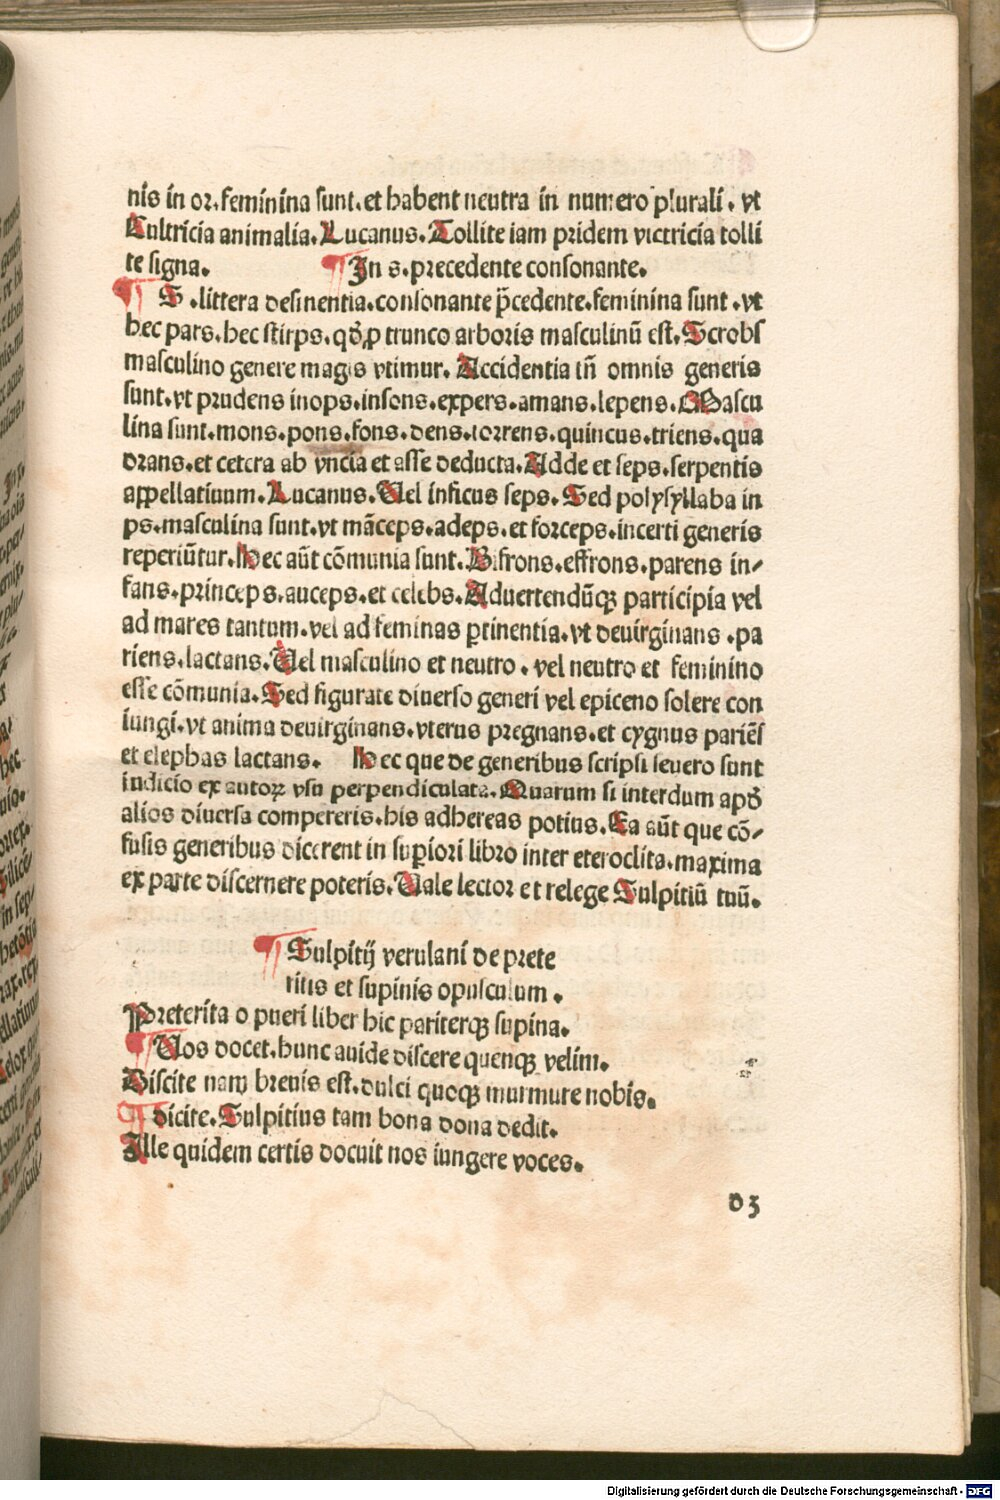 nis in or. feminina sunt. et habent neutra in numero plurali. vt
Cultricia animalia. Lucanus. Tollite iam pridem victricia tolli
te signa. ¶ In s. precedente consonante.
¶ S. littera desinentia. consonante p̄cedente. feminina sunt. vt
hec pars. hec stirps. qđ ꝓ trunco arboris masculinū est. Scrobs
masculino genere magis vtimur. Accidentia in̄ omnis generis
sunt. vt prudens inops. insons. expers. amans. lepens. Mascu
lina sunt. mons. pons. fons. dens. torrens. quincus. triens. qua
drans. et cetera ab vncia et asse deducta. Adde et seps. serpentis
appellatiuum. Lucanus. Vel inficus seps. Sed polysyllaba in
ps. masculina sunt. vt māceps. adeps. et forceps. incerti generis
reperiūtur. Hec aūt cōmunia sunt. Bifrons. effrons. parens in⸗
fans. princeps. auceps. et celebs. Aduertendūqꝫ participia vel
ad mares tantum. vel ad feminas ꝑtinentia. vt deuirginans. pa
riens. lactans. Vel masculino et neutro. vel neutro et feminino
esse cōmunia. Sed figurate diuerso generi vel epiceno solere con
iungi. vt anima deuirginans. vterus pregnans. et cygnus pariēs
et elephas lactans. Hec que de generibus scripsi seuero sunt
iudicio ex autorꝝ vsu perpendiculata. Quarum si interdum apđ
alios diuersa compereris. his adhereas potius. Ea aūt que cō⸗
fusis generibus dicerent in suꝑiori libro inter eteroclita. maxima
ex parte discernere poteris. Vale lector et relege Sulpitiū tuū.
¶ Sulpitij verulani de prete
ritis et supinis opusculum.
Preterita o pueri liber hic pariterqꝫ supina.
¶ Vos docet. hunc auide discere quenqꝫ velim.
Discite nam breuis est. dulci quoqꝫ murmure nobis.
¶ dicite. Sulpitius tam bona dona dedit.
Ille quidem certis docuit nos iungere voces.
d3
Digitalisierung gefördert durch die Deutsche Forschungsgemeinschaft - DFG